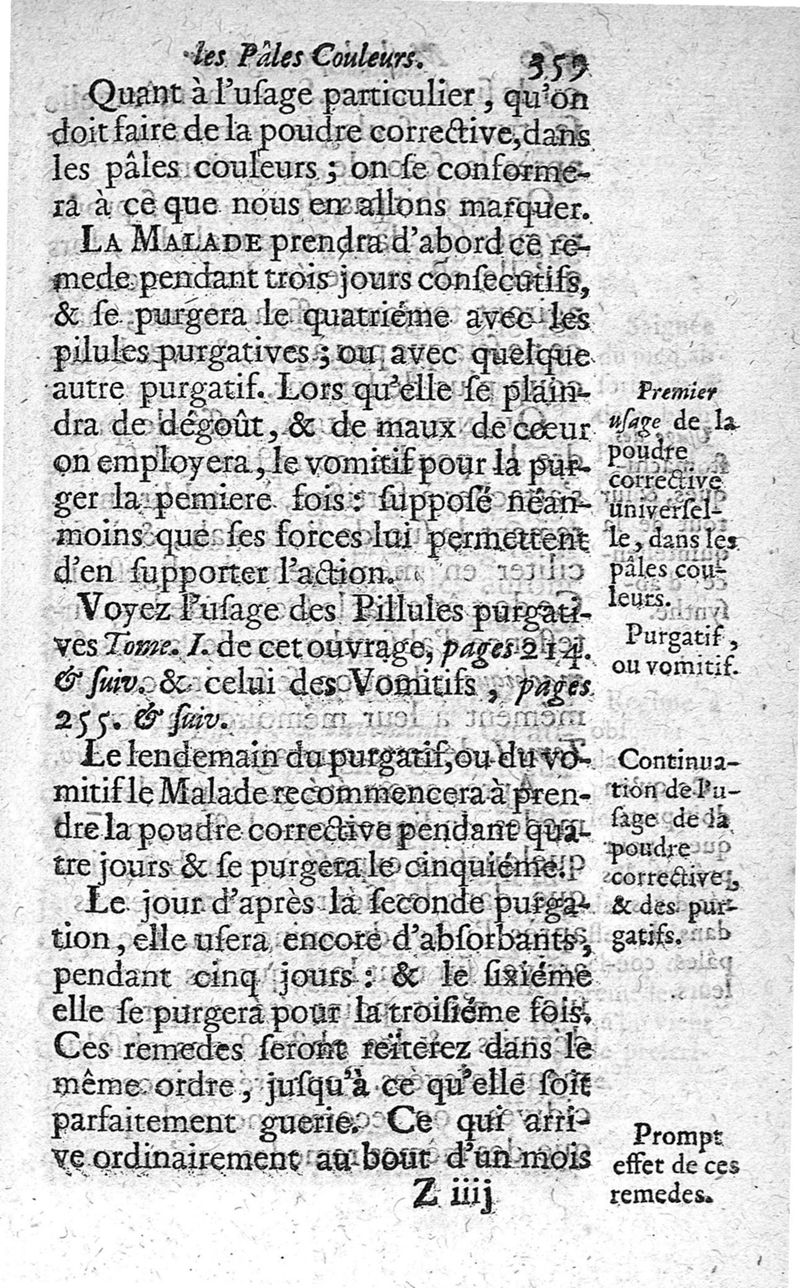 les Pâles Couleurs. 359
Quant à l'uſage particulier, qu'on
doit faire de la poudre corrective, dans
les pâles couleurs ; on ſe conforme-
ra à ce que nous en allons marquer.
LA MALADE prendra d'abord ce re-
mede pendant trois jours conſecutifs,
& ſe purgera le quatriéme avec les
pilules purgatives ; ou avec quelque
autre purgatif. Lors qu'elle ſe plain-
dra de dêgoût, & de maux de cœur
on employera, le vomitif pour la pur-
ger la pemiere fois : ſuppoſé nêan-
moins que ſes forces lui permettent
d'en ſupporter l'action.
Voyez l'uſage des Pillules purgati-
ves Tome. I. de cet ouvrage, pages 214.
& ſuiv. & celui des Vomitifs, pages
255. & ſuiv.
Le lendemain du purgatif, ou du vo-
mitif le Malade recommencera à pren-
dre la poudre corrective pendant qua-
tre jours & ſe purgera le cinquiéme.
Le jour d'après la ſeconde purga-
tion, elle uſera encore d'abſorbants,
pendant cinq jours : & le ſixiéme
elle ſe purgera pour la troiſiéme fois.
Ces remedes ſeront réiterez dans le
même ordre, juſqu'à ce qu'elle ſoit
parfaitement guerie. Ce qui arri-
ve ordinairement au bout d'un mois
Z iiij
Premier
uſage de la
poudre
corrective
univerſel-
le, dans les
pâles cou-
leurs.
Purgatif,
ou vomitif.
Continua-
tion de l'u-
ſage de la
poudre
corrective,
& des pur-
gatifs.
Prompt
effet de ces
remedes.